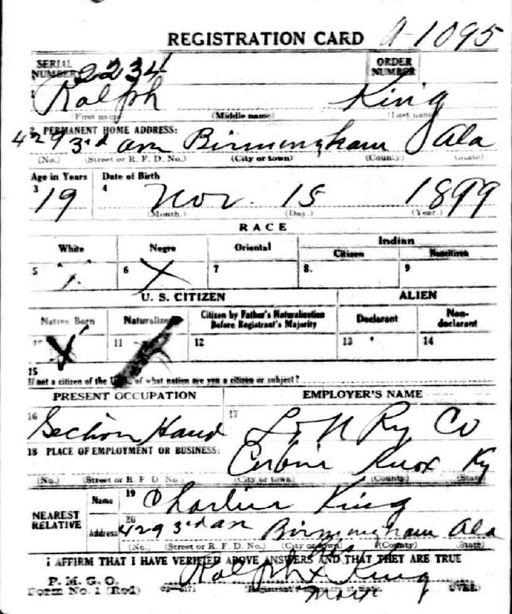 REGISTRATION CARD A-1095
SERIAL NUMBER 2234 ORDER NUMBER
1 Ralph King
(First name) (Middle name) (Last name)
2 PERMANENT HOME ADDRESS:
429 3rd ave Birmingham Ala
(No.) (Street or R. F. D. No.) (City or town) (County) (State)
Age in Years Date of Birth
3 19 4 Nov. 15 1899
(Month.) (Day.) (Year.)
RACE
White Negro Oriental Indian
Citizen Noncitizen
5 6 X 7 8. 9
U. S. CITIZEN ALIEN
Native Born Naturalized Citizen by Father's Naturalization Before Registrant's Majority Declarant Non-declarant
10 X 11 12 13 14
15
If not a citizen of the U.S., of what nation are you a citizen or subject?
PRESENT OCCUPATION EMPLOYER'S NAME
16 Section Hand 17 L & N Ry Co
18 PLACE OF EMPLOYMENT OR BUSINESS:
Corbin Knox Ky
(No.) (Street or R. F. D. No.) (City or town) (County) (State)
NEAREST RELATIVE Name 19 Charlie King
Address 20 429 3rd av Birmingham Ala
(No.) (Street or R. F. D. No.) (City or town) (County) (State)
I AFFIRM THAT I HAVE VERIFIED ABOVE ANSWERS AND THAT THEY ARE TRUE
P. M. G. O.
Form No. 1 (Red) Ralph X King
mark (OVER)